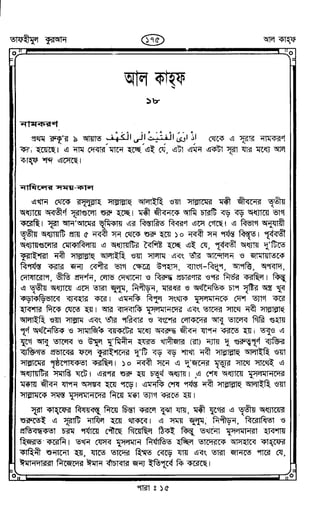 তাফহীমুল কুরআন
১৭৫
আল কাহ্ফ
আল কাহ্ফ
১৮
নামকরণ
প্রথম রুকূ'র ৯ আয়াত اذ اوى الفتية الى الكهف থেকে এ সূরার নামকরণ
করা হয়েছে। এ নাম দেবার মানে হচ্ছে এই যে, এটা এমন একটা সূরা যার মধ্যে আল
কাহ্ফ শব্দ এসেছে।
নাযিলের সময়-কাল
এখান থেকে রসূলুল্লাহ সাল্লাল্লাহু আলাইহি ওয়া সাল্লামের মক্কী জীবনের তৃতীয়
অধ্যায়ে অবতীর্ণ সূরাগুলো শুরু হচ্ছে। মক্কী জীবনকে আমি চারটি বড় বড় অধ্যায়ে ভাগ
করেছি। সূরা আন'আমের ভূমিকায় এর বিস্তারিত বিবরণ এসে গেছে। এ বিভাগ অনুযায়ী
তৃতীয় অধ্যায়টি প্রায় ৫ নববী সন থেকে শুরু হয়ে ১০ নববী সন পর্যন্ত বিস্তৃত। পূর্ববর্তী
অধ্যায়গুলোর মোকাবিলায় এ অধ্যায়টির বৈশিষ্ট হচ্ছে এই যে, পূর্ববর্তী অধ্যায় দু'টিতে
কুরাইশরা নবী সাল্লাল্লাহু আলাইহি ওয়া সাল্লাম এবং তাঁর আন্দোলন ও জামায়াতকে
বিপর্যস্ত করার জন্য বেশীর ভাগ ক্ষেত্রে উপহাস, ব্যাংগ-বিদ্রূপ, আপত্তি, অপবাদ,
দোষারোপ, ভীতি প্রদর্শন, লোভ দেখানো ও বিরুদ্ধ প্রচারণার ওপর নির্ভর করছিল। কিন্তু
এ তৃতীয় অধ্যায়ে এসে তারা জুলুম, নিপীড়ন, মারধর ও অর্থনৈতিক চাপ সৃষ্টির অস্ত্র খুব
কড়াকড়িভাবে ব্যবহার করে। এমনকি বিপুল সংখ্যক মুসলমানকে দেশ ত্যাগ করে
হাবশার দিকে যেতে হয়। আর বাদবাকি মুসলমানদের এবং তাদের সাথে নবী সাল্লাল্লাহু
আলাইহি ওয়া সাল্লাম এবং তাঁর পরিবার ও বংশের লোকদের আবু তালেব গিরি গুহায়
পূর্ণ অর্থনৈতিক ও সামাজিক বয়কটের মধ্যে অবরুদ্ধ জীবন যাপন করতে হয়। তবুও এ
যুগে আবু তালেব ও উম্মুল মু'মিনীন হযরত খাদীজার (রা) ন্যায় দু ব্যক্তিত্বের
ব্যক্তিগত প্রভাবের ফলে কুরাইশদের দু'টি বড় বড় শাখা নবী সাল্লাল্লাহু আলাইহি ওয়া
সাল্লামের পৃষ্ঠপোষকতা করছিল। ১০ নববী সনে এ দু'জনের মৃত্যুর সাথে সাথেই এ
অধ্যায়টির সমাপ্তি ঘটে। এরপর শুরু হয় চতুর্থ অধ্যায়। এ শেষ অধ্যায়ে মুসলমানদের
মক্কায় জীবন যাপন অসম্ভব হয়ে পড়ে। এমনকি শেষ পর্যন্ত নবী সাল্লাল্লাহু আলাইহি ওয়া
সাল্লামকে সমস্ত মুসলমানদের নিয়ে মক্কা ত্যাগ করতে হয়।
সূরা কাহ্ফের বিষয়বস্তু নিয়ে চিন্তা করলে বুঝা যায়, মক্কী যুগের এ তৃতীয় অধ্যায়ের
শুরুতেই এ সূরাটি নাযিল হয়ে থাকবে। এ সময় জুলুম, নিপীড়ন, বিরোধিতা ও
প্রতিবন্ধকতা চরম পর্যায়ে পৌঁছে গিয়েছিল ঠিকই কিন্তু তখনো মুসলমানরা হাবশায়
হিজরত করেনি। তখন যেসব মুসলমান নির্যাতিত হচ্ছিল তাদেরকে আসহাবে কাহ্ফের
কাহিনী শুনানো হয়, যাতে তাদের হিম্মত বেড়ে যায় এবং তারা জানতে পারে যে,
ঈমানদাররা নিজেদের ঈমান বাঁচাবার জন্য ইতিপূর্বে কি করেছে।
পারা : ১৫